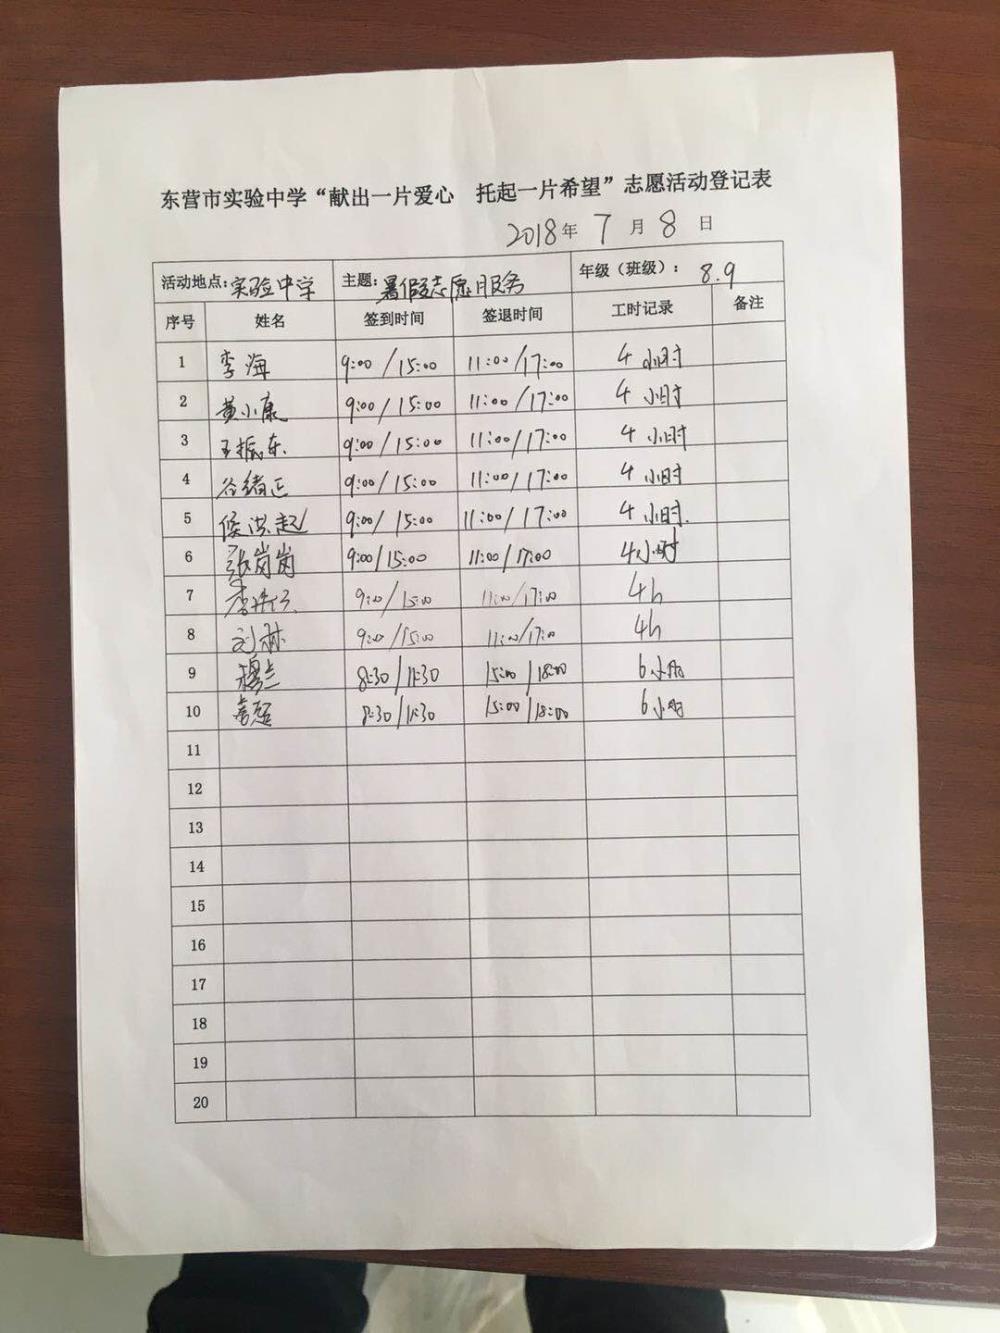 东营市实验中学“献出一片爱心 托起一片希望”志愿活动登记表
2018年 7 月 8 日
活动地点: 实验中学 主题: 暑假志愿服务 年级（班级）: 8.9
序号 姓名 签到时间 签退时间 工时记录 备注
1 李海 9:00/15:00 11:00/17:00 4 小时
2 黄小康 9:00/15:00 11:00/17:00 4 小时
3 王振东 9:00/15:00 11:00/17:00 4 小时
4 谷绪正 9:00/15:00 11:00/17:00 4 小时
5 侯洪起 9:00/15:00 11:00/17:00 4 小时.
6 张岗岗 9:00/15:00 11:00/17:00 4小时
7 9:00/15:00 11:00/17:00 4h
8 刘林 9:00/15:00 11:00/17:00 4h
9 8:30/11:30 15:00/18:00 6小时
10 8:30/11:30 15:00/18:00 6小时
11
12
13
14
15
16
17
18
19
20